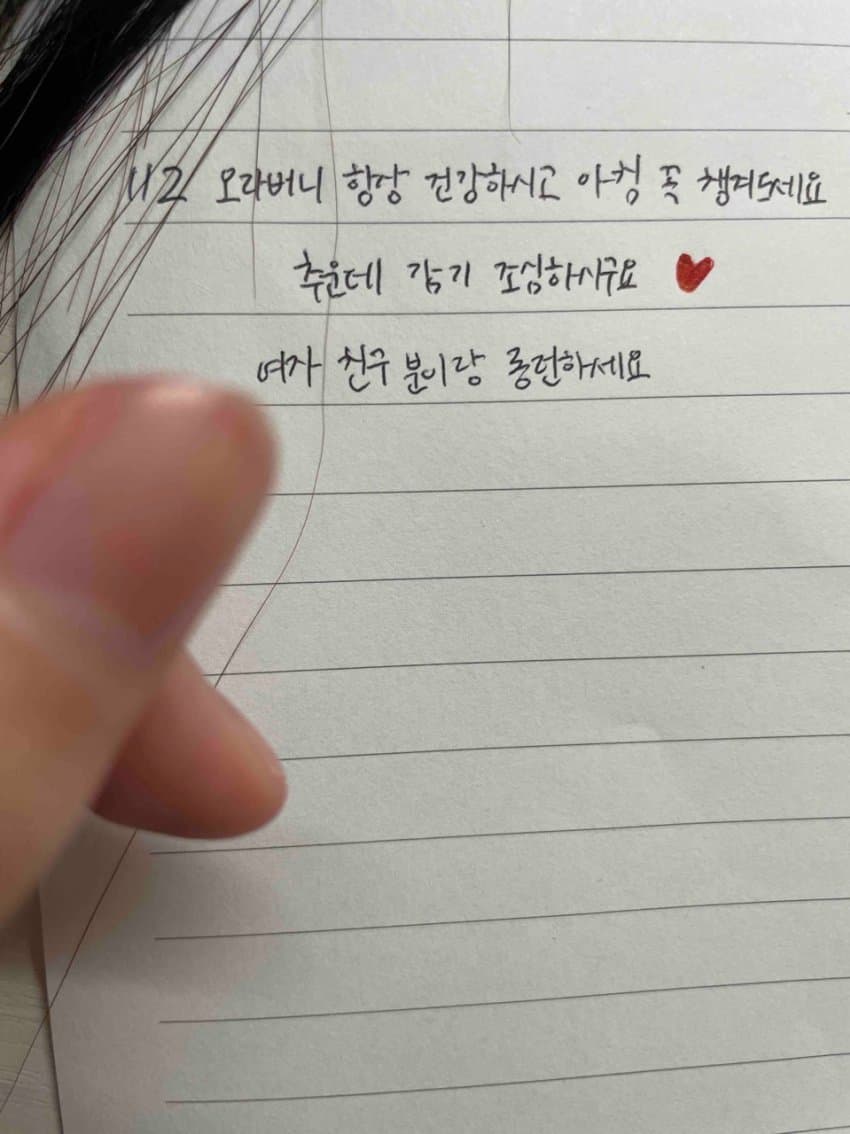 112 오라버니 항상 건강하시고 아침 꼭 챙겨드세요
추운데 감기 조심하시구요
여자 친구 분이랑 롱런하세요